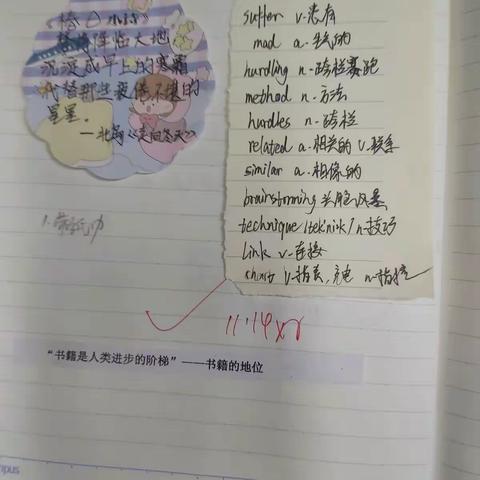 《桥口小诗》
沉淀成早上的寒霜
代替那些疲倦不堪的
星星。
——北岛《走向冬天》
suffer v.患有
mad a.生气的
hurdling n.跨栏赛跑
method n.方法
hurdles n.跨栏
related a.相关的 v.联系
similar a.相像的
brainstorming 头脑风暴
technique /tek'nik/ n.技巧
link v.连接
v.指责,充电 n.指控
11.14
“书籍是人类进步的阶梯”——书籍的地位
mpus